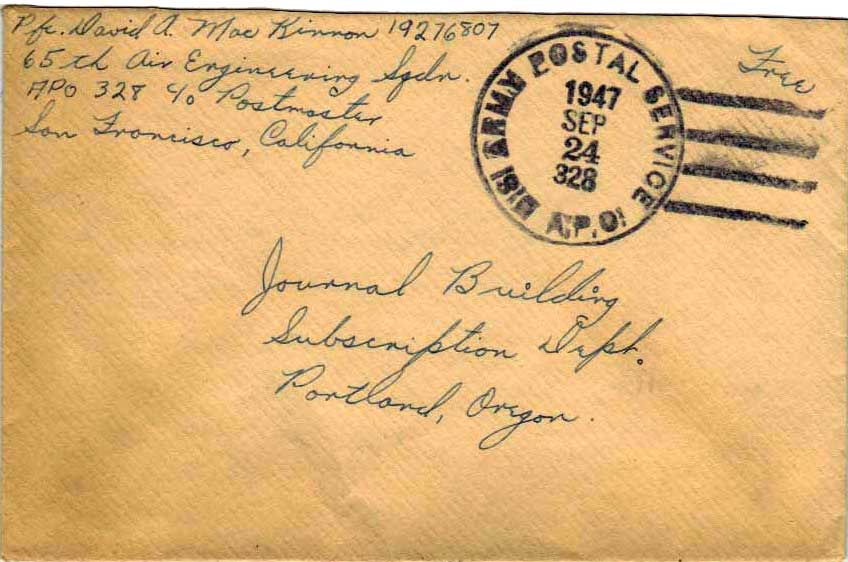 Pfc. David A. Mac Kinnon 19276807
65th Air Engineering Sqdn.
APO 328 c/o Postmaster
San Francisco, California
Free
U.S. ARMY POSTAL SERVICE
A.P.O.
1947
SEP
24
328
Journal Building
Subscription Dept.
Portland, Oregon.